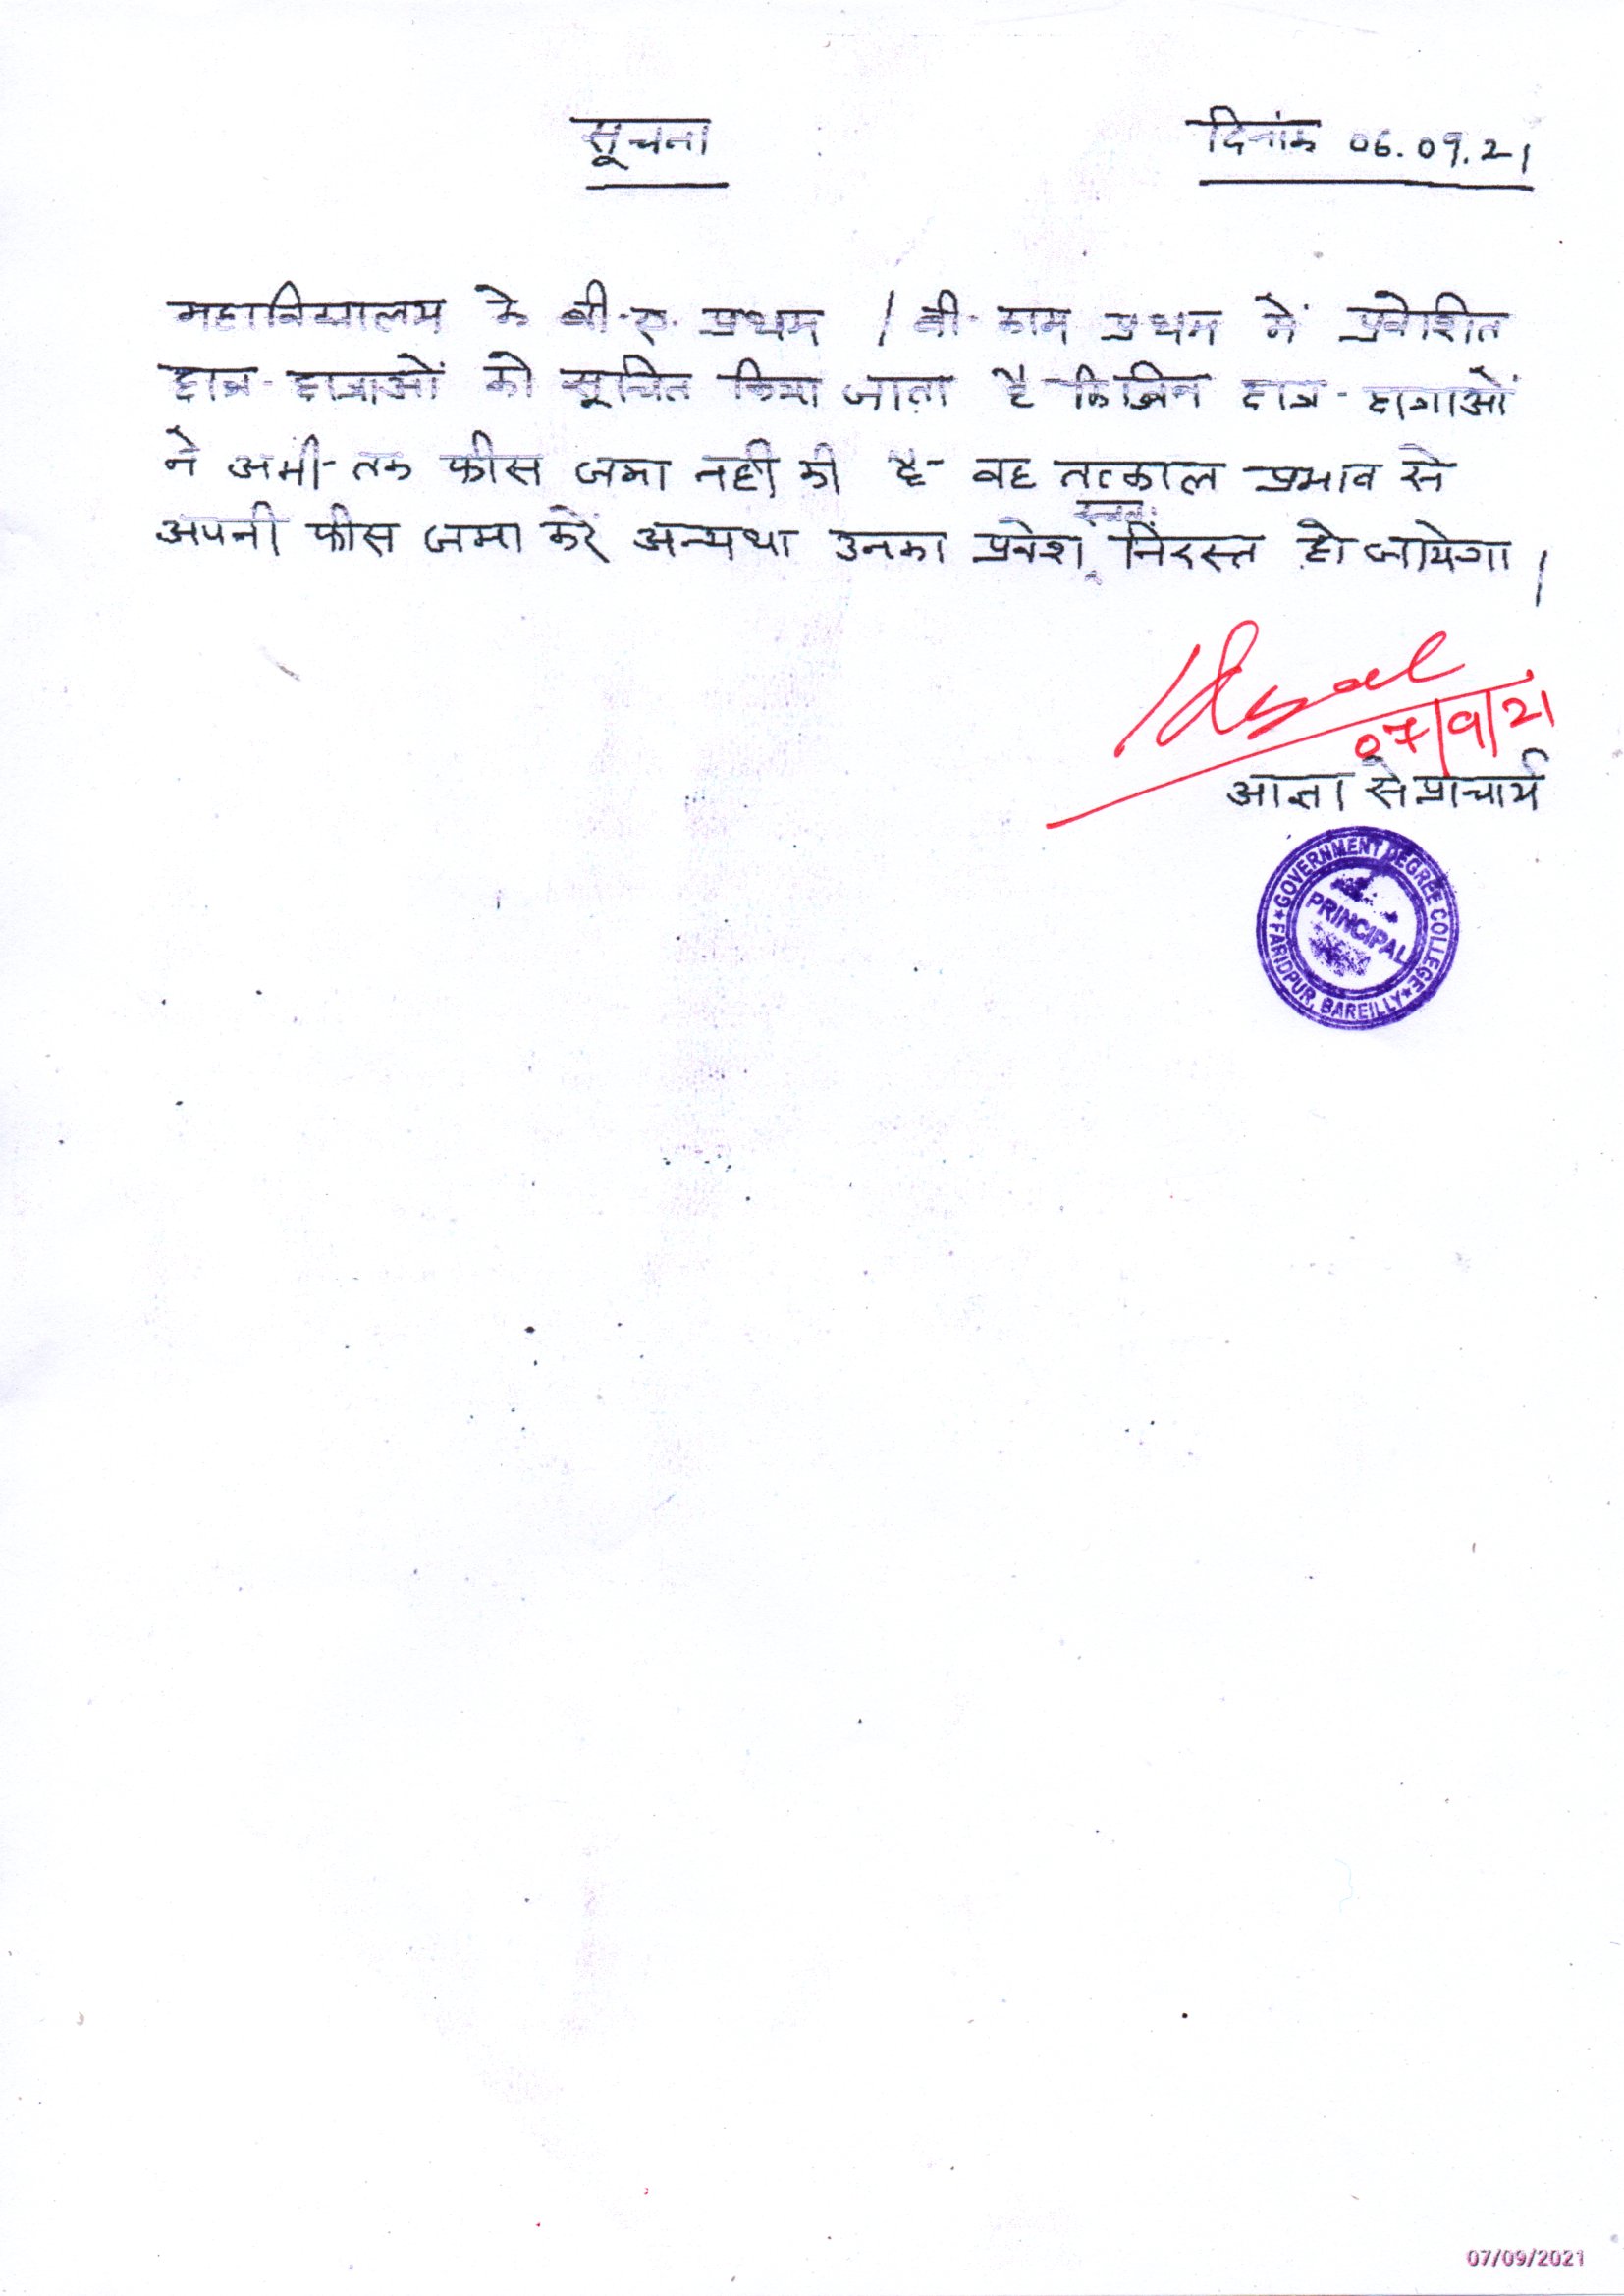 सूचना
दिनांक 06.09.21
महाविद्यालय के बी.ए. प्रथम / बी. काम प्रथम में प्रवेशित
छात्र-छात्राओं को सूचित किया जाता है कि जिन छात्र-छात्राओं
ने अभी-तक फीस जमा नही की है- वह तत्काल प्रभाव से
स्वतः
अपनी फीस जमा करें अन्यथा उनका प्रवेश निरस्त हो जायेगा।
07/9/21
आज्ञा से प्राचार्य
GOVERNMENT DEGREE COLLEGE
PRINCIPAL
FARIDPUR, BAREILLY
07/09/2021